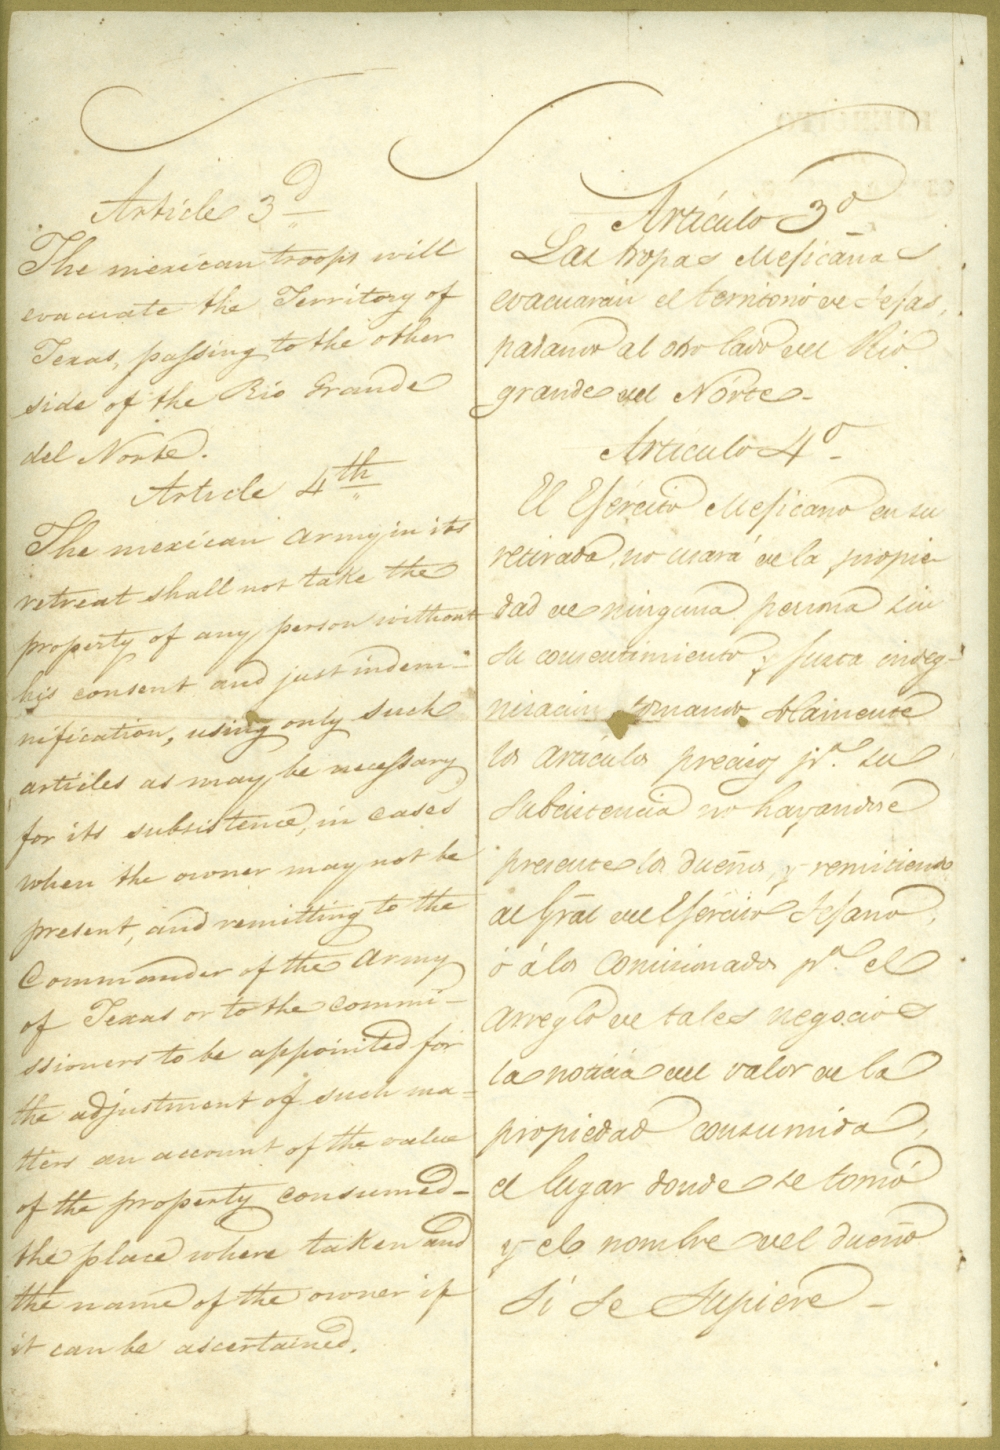 Article 3d
The mexican troops will
evacuate the Territory of
Texas, passing to the other
side of the Rio Grande
del Norte.
Article 4th
The mexican army in its
retreat shall not take the
property of any person without
his consent and just indem-
nification, using only such
articles as may be necessary
for its subsistence, in cases
when the owner may not be
present, and remitting to the
Commander of the Army
of Texas or to the commi-
ssioners to be appointed for
the adjustment of such ma-
tters an account of the value
of the property consumed-
the place where taken and
the name of the owner if
it can be ascertained.
Artículo 3o
Las tropas Mejicanas
evacuarán el territorio de Tejas,
pasando al otro lado del Rio
grande del Norte-
Artículo 4o-
El Ejército Mejicano en su
retirada no usará de la propie
dad de ninguna persona sin
su consentimiento y justa indeg-
nisacion tomando solamente
los artículos precisos pa. su
subcistencia no hayandose
presente los dueños, y remitiendo
al Gral del Ejército Tejano,
ó á los comicionados pa. el
arreglo de tales negocios
la noticia del valor de la
propiedad consumida,
el lugar donde se tomó
y el nombre del dueño
Si se supiere-